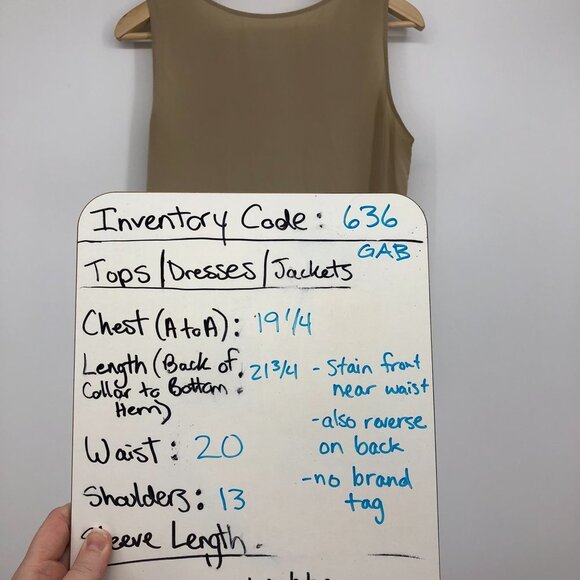 Inventory Code: 636
GAB
Tops/Dresses/Jackets
Chest (A to A): 19 1/4
Length (Back of
Collar to Bottom
Hem) : 21 3/4
- Stain front
near waist
- also reverse
on back
- no brand
tag
Waist: 20
Shoulders: 13
Sleeve Length.